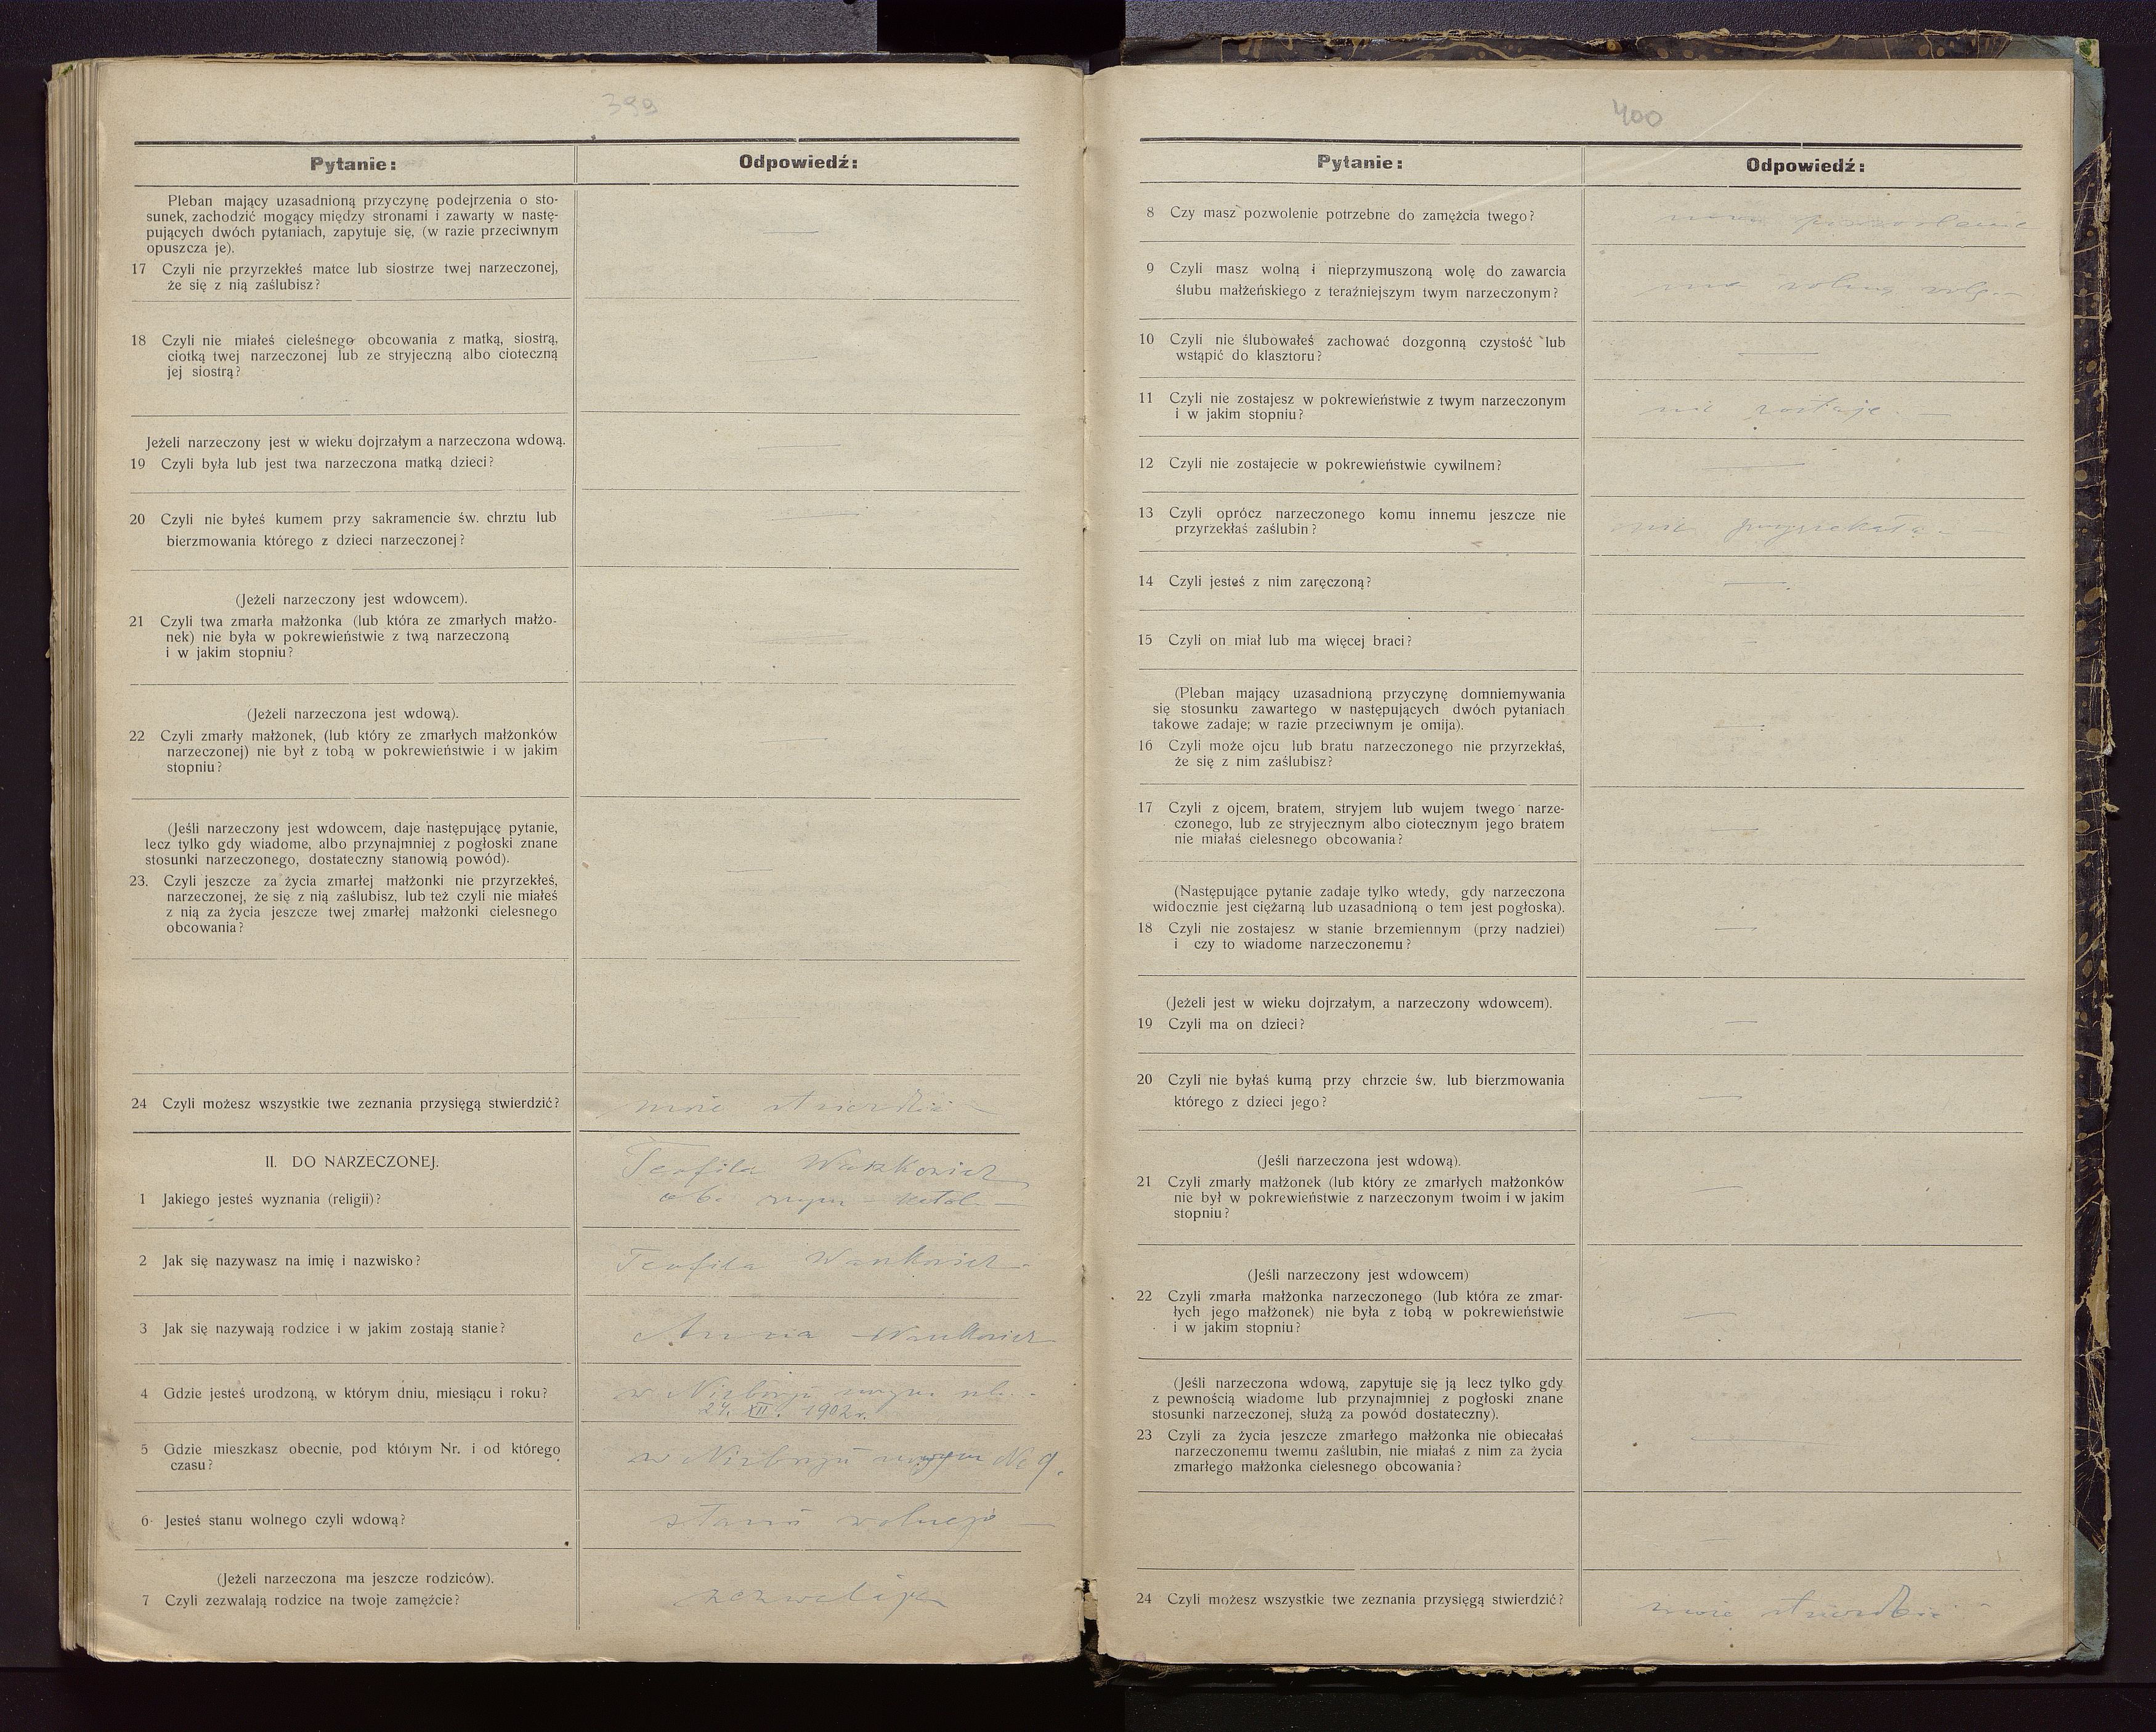 399
Pytanie:
Odpowiedź:
Pleban mający uzasadnioną przyczynę podejrzenia o sto-
sunek, zachodzić mogący między stronami i zawarty w nastę-
pujących dwóch pytaniach, zapytuje się, (w razie przeciwnym
opuszcza je).
17 Czyli nie przyrzekłeś matce lub siostrze twej narzeczonej,
że się z nią zaślubisz?
18 Czyli nie miałeś cieleśnego obcowania z matką, siostrą,
ciotką twej narzeczonej lub ze stryjeczną albo cioteczną
jej siostrą?
Jeżeli narzeczony jest w wieku dojrzałym a narzeczona wdową.
19 Czyli była lub jest twa narzeczona matką dzieci?
20 Czyli nie byłeś kumem przy sakramencie św. chrztu lub
bierzmowania którego z dzieci narzeczonej?
(Jeżeli narzeczony jest wdowcem).
21 Czyli twa zmarła małżonka (lub która ze zmarłych małżo-
nek) nie była w pokrewieństwie z twą narzeczoną
i w jakim stopniu?
(Jeżeli narzeczona jest wdową).
22 Czyli zmarły małżonek, (lub który ze zmarłych małżonków
narzeczonej) nie był z tobą w pokrewieństwie i w jakim
stopniu?
(Jeśli narzeczony jest wdowcem, daje następującę pytanie,
lecz tylko gdy wiadome, albo przynajmniej z pogłoski znane
stosunki narzeczonego, dostateczny stanowią powód).
23. Czyli jeszcze za życia zmarłej małżonki nie przyrzekłeś,
narzeczonej, że się z nią zaślubisz, lub też czyli nie miałeś
z nią za życia jeszcze twej zmarłej małżonki cielesnego
obcowania?
24 Czyli możesz wszystkie twe zeznania przysięgą stwierdzić?
może stwierdzić
II. DO NARZECZONEJ.
Teofila
1 Jakiego jesteś wyznania (religii)?
katol.
2 Jak się nazywasz na imię i nazwisko?
Teofila
3 Jak się nazywają rodzice i w jakim zostają stanie?
Anna
4 Gdzie jesteś urodzoną, w którym dniu, miesiącu i roku?
w
24. XII. 1902 r.
5 Gdzie mieszkasz obecnie, pod którym Nr. i od którego
czasu?
w No 9.
6 Jesteś stanu wolnego czyli wdową?
stanu wolnego
(Jeżeli narzeczona ma jeszcze rodziców).
7 Czyli zezwalają rodzice na twoje zamęźcie?
400
Pytanie:
Odpowiedź:
8 Czy masz pozwolenie potrzebne do zamężcia twego?
pozwolenie
9 Czyli masz wolną i nieprzymuszoną wolę do zawarcia
ślubu małżeńskiego z teraźniejszym twym narzeczonym?
ma wolną wolę
10 Czyli nie ślubowałeś zachować dozgonną czystość lub
wstąpić do klasztoru?
11 Czyli nie zostajesz w pokrewieństwie z twym narzeczonym
i w jakim stopniu?
nie zostaje
12 Czyli nie zostajecie w pokrewieństwie cywilnem?
13 Czyli oprócz narzeczonego komu innemu jeszcze nie
przyrzekłaś zaślubin?
nie
14 Czyli jesteś z nim zaręczoną?
15 Czyli on miał lub ma więcej braci?
(Pleban mający uzasadnioną przyczynę domniemywania
się stosunku zawartego w następujących dwóch pytaniach
takowe zadaje; w razie przeciwnym je omija).
16 Czyli może ojcu lub bratu narzeczonego nie przyrzekłaś,
że się z nim zaślubisz?
17 Czyli z ojcem, bratem, stryjem lub wujem twego narze-
czonego, lub ze stryjecznym albo ciotecznym jego bratem
nie miałaś cielesnego obcowania?
(Następujące pytanie zadaje tylko wtedy, gdy narzeczona
widocznie jest ciężarną lub uzasadnioną o tem jest pogłoska).
18 Czyli nie zostajesz w stanie brzemiennym (przy nadziei)
i czy to wiadome narzeczonemu?
(Jeżeli jest w wieku dojrzałym, a narzeczony wdowcem).
19 Czyli ma on dzieci?
20 Czyli nie byłaś kumą przy chrzcie św. lub bierzmowania
którego z dzieci jego?
(Jeśli narzeczona jest wdową).
21 Czyli zmarły małżonek (lub który ze zmarłych małżonków
nie był w pokrewieństwie z narzeczonym twoim i w jakim
stopniu?
(Jeśli narzeczony jest wdowcem)
22 Czyli zmarła małżonka narzeczonego (lub która ze zmar-
łych jego małżonek) nie była z tobą w pokrewieństwie
i w jakim stopniu?
(Jeśli narzeczona wdową, zapytuje się ją lecz tylko gdy
z pewnością wiadome lub przynajmniej z pogłoski znane
stosunki narzeczonej, służą za powód dostateczny).
23 Czyli za życia jeszcze zmarłego małżonka nie obiecałaś
narzeczonemu twemu zaślubin, nie miałaś z nim za życia
zmarłego małżonka cielesnego obcowania?
24 Czyli możesz wszystkie twe zeznania przysięgą stwierdzić?
może stwierdzić